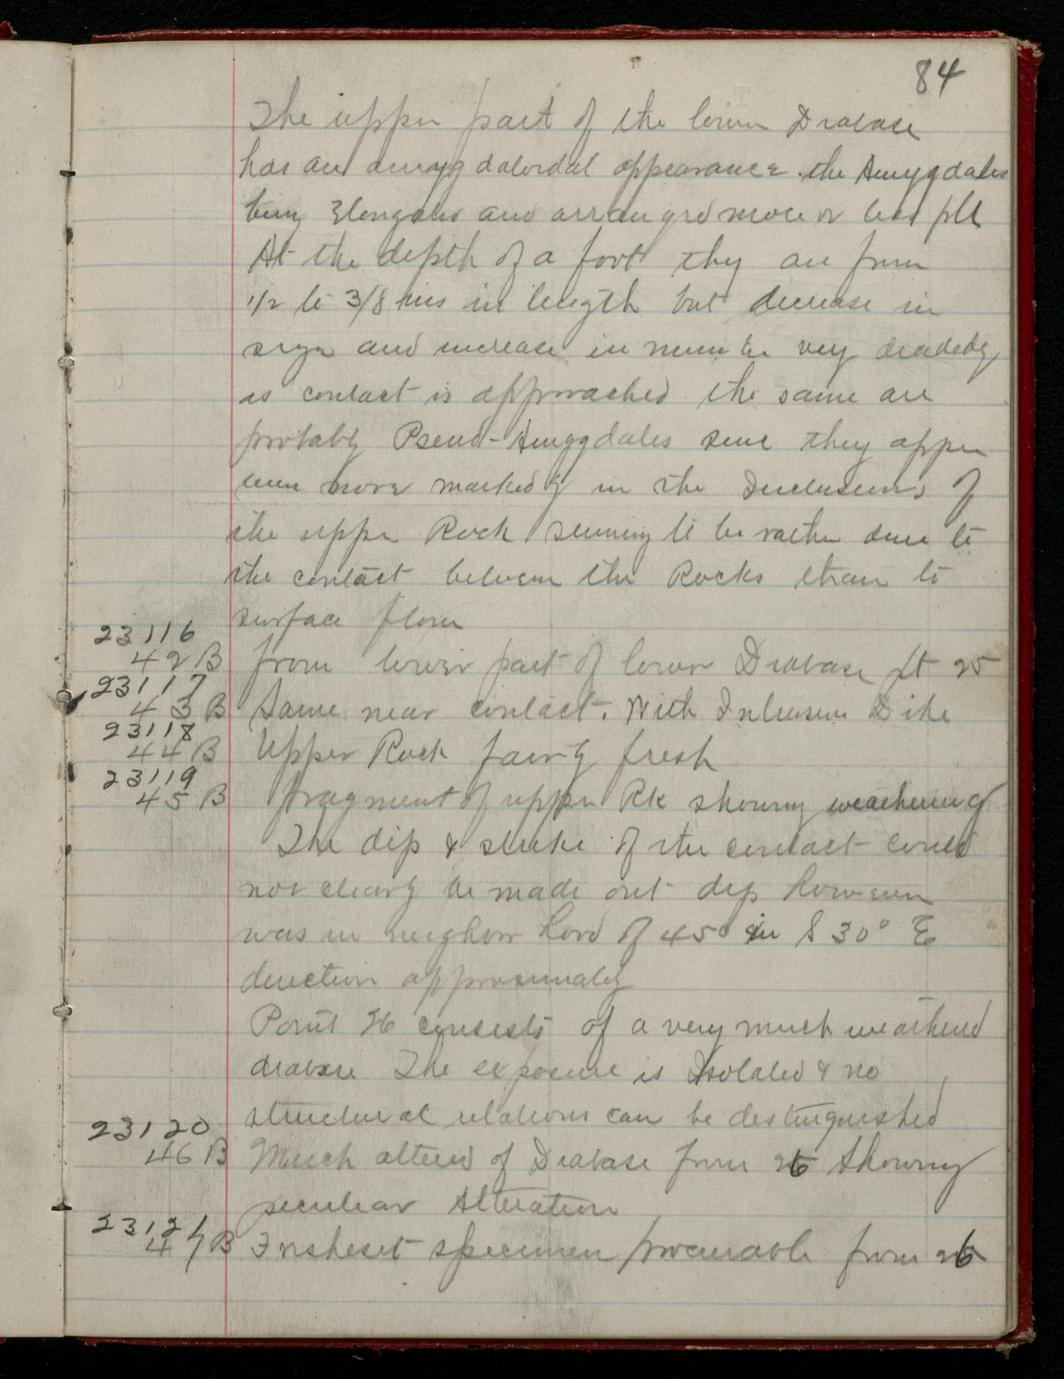 84
The upper part of the lower Diabase
has an amygdaloidal appearance. the Amygdales
being Elongated and arranged more or less pll
At the depth of a foot they are from
1/2 to 3/8 ins in length but decrease in
size and increase in number very decidedly
as contact is approached the same are
probably Pseudo-Amygdales since they appear
even more markedly in the Inclusions of
the upper Rock seeming to be rather due to
the contact between the Rocks than to
surface flow
23116
42B from lower part of lower Diabase Pt 25
23117
43B Same near contact. With Intrusive Dike
23118
44B Upper Rock fairly fresh
23119
45B fragment of upper Rk showing weathering
The dip & strike of the contact could
not clearly be made out dip however
was in neighborhood of 45° in S 30° E
direction approximately
Point 26 consists of a very much weathered
diabase The exposure is Isolated & no
structural relations can be distinguished
23120
46B Much altered of Diabase from 26 Showing
peculiar Alteration
23121
47B Freshest specimen procurable from 26